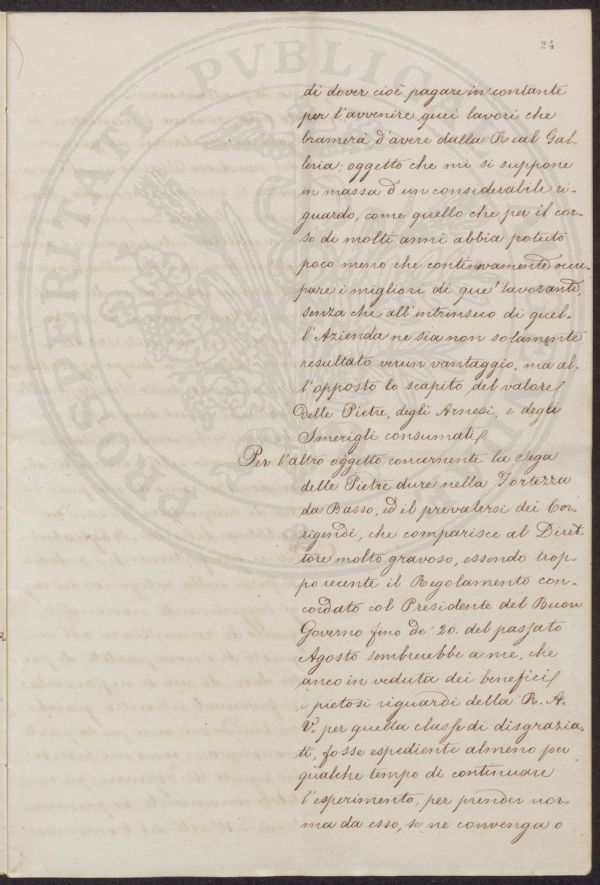 24
di dover cioè pagare in contante
per l'avvenire quei lavori che
bramerà d'avere dalla Real Gal-
leria; oggetto che mi si suppone
in massa d'un considerabile ri-
guardo, come quello che per il cor-
so di molti anni abbia potuto
poco meno che continovamente occu-
pare i migliori di que' lavoranti,
senza che all'intrinseco di quel-
l'Azienda ne sia non solamente
resultato verun vantaggio, ma al-
l'opposto lo scapito del valore
delle Pietre, degli Arnesi, e degli
Smerigli consumati
Per l'altro oggetto concernente la Sega
delle Pietre dure nella Fortezza
da Basso, ed il prevalersi dei Cor-
rigendi, che comparisce al Diret-
tore molto gravoso, essendo trop-
po recente il Regolamento con-
cordato col Presidente del Buon
Governo fino de' 20. del passato
Agosto sembrerebbe a me, che
anco in veduta dei benefici
e pietosi riguardi della R. A.
V. per quella classe di disgrazia-
ti, fosse espediente almeno per
qualche tempo di continuare
l'esperimento, per prender nor-
ma da esso, se ne convenga o
PROSPERITATI PVBLICAE